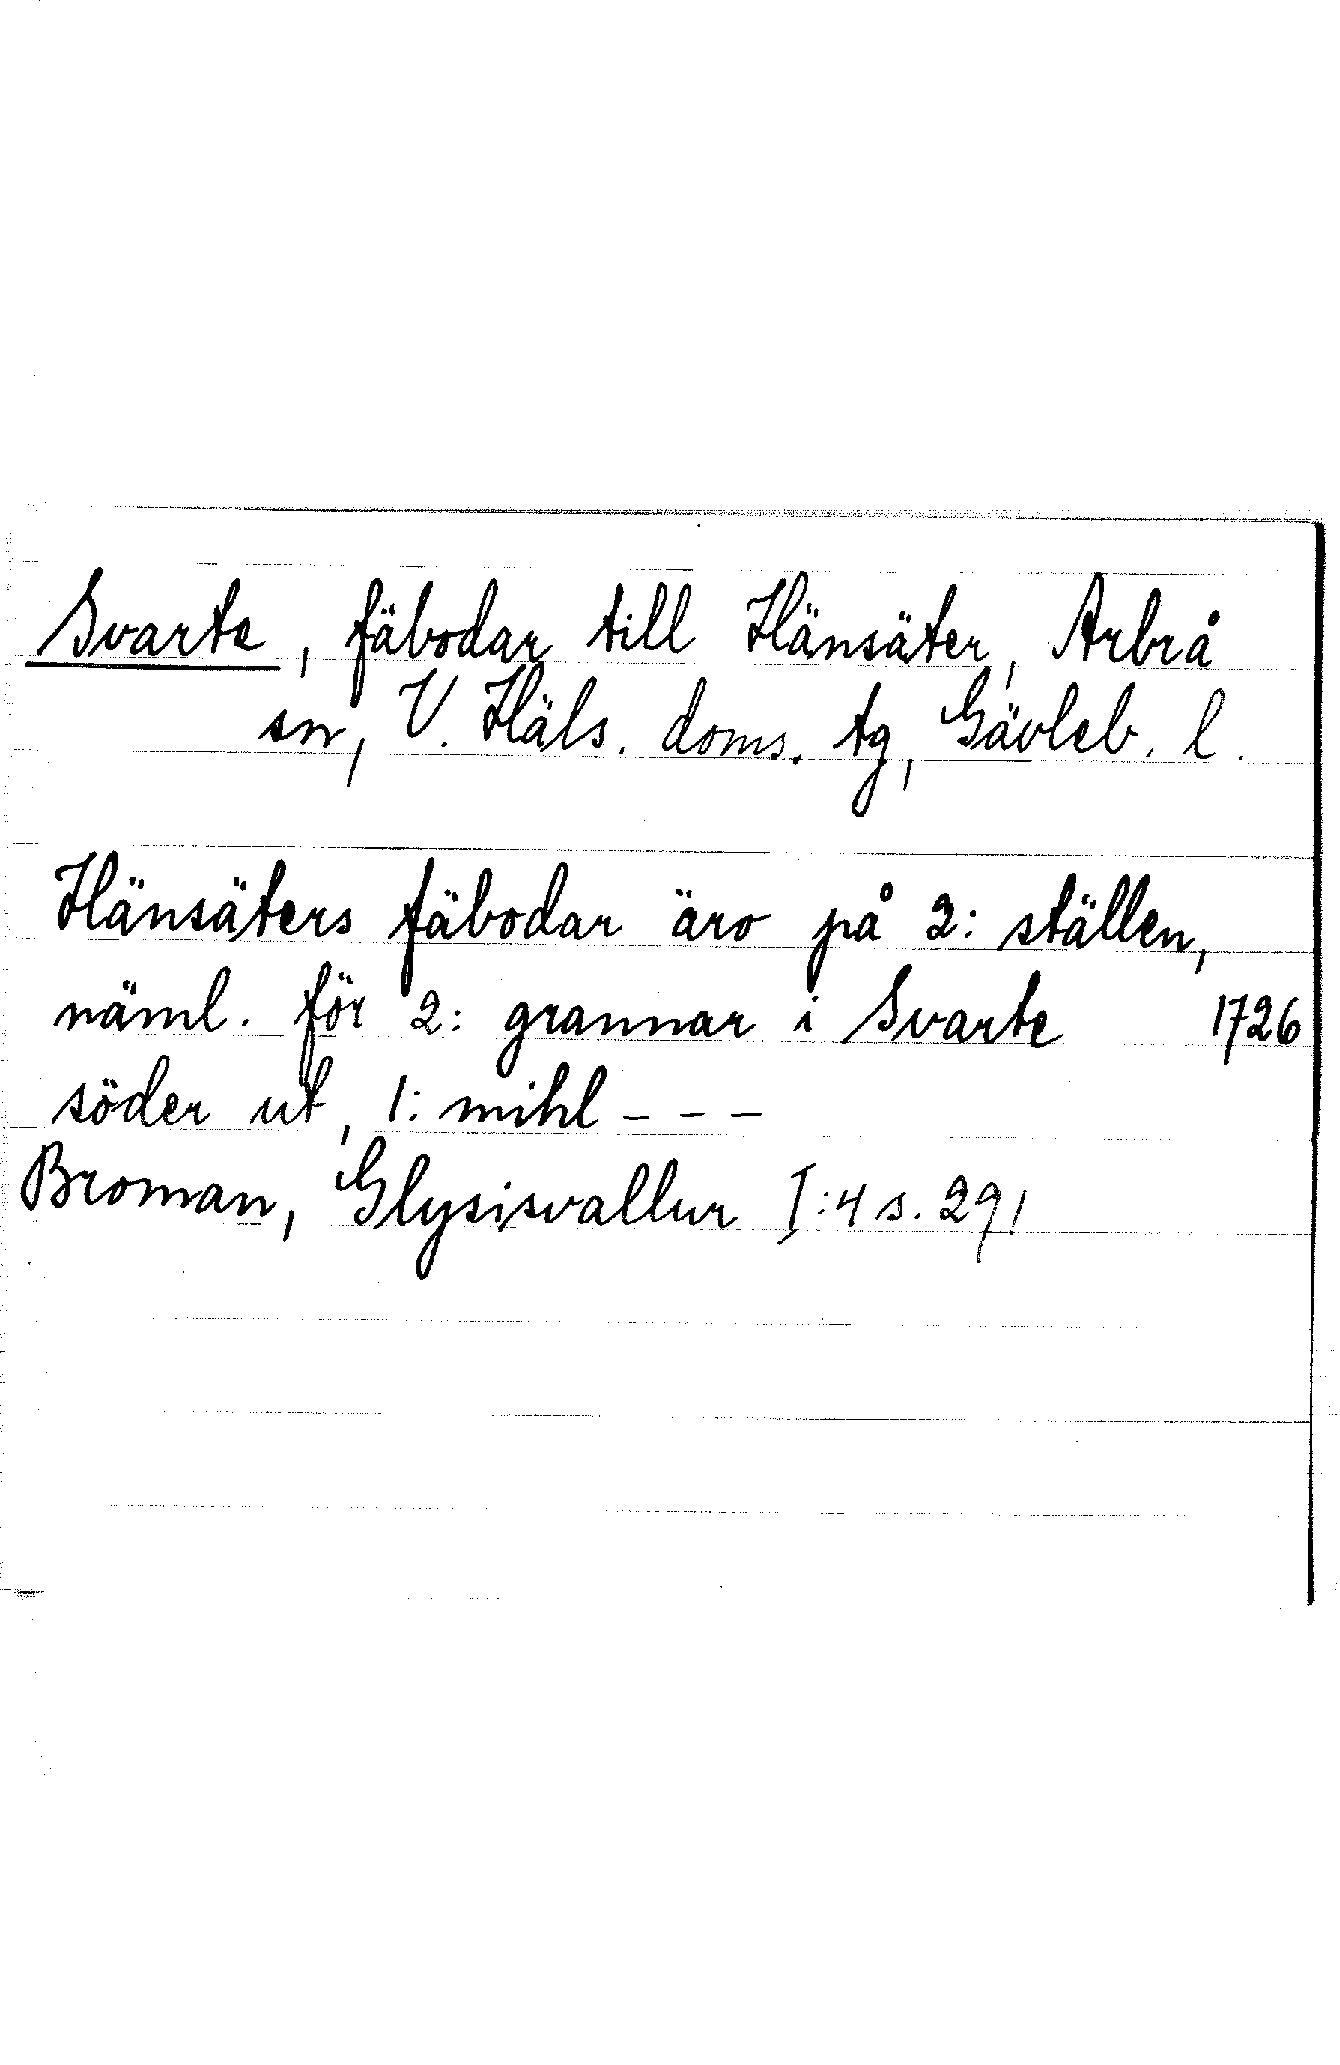 Svarte, fäbodar till Hänsäter, Arbrå
sn, V. Häls. doms. tg, Gävleb. l.
Hänsäters fäbodar äro på 2: ställen,
näml. för 2: grannar i Svarte 1726
söder ut, 1: mihl - - -
Broman, Glysisvallur I:4 s. 291